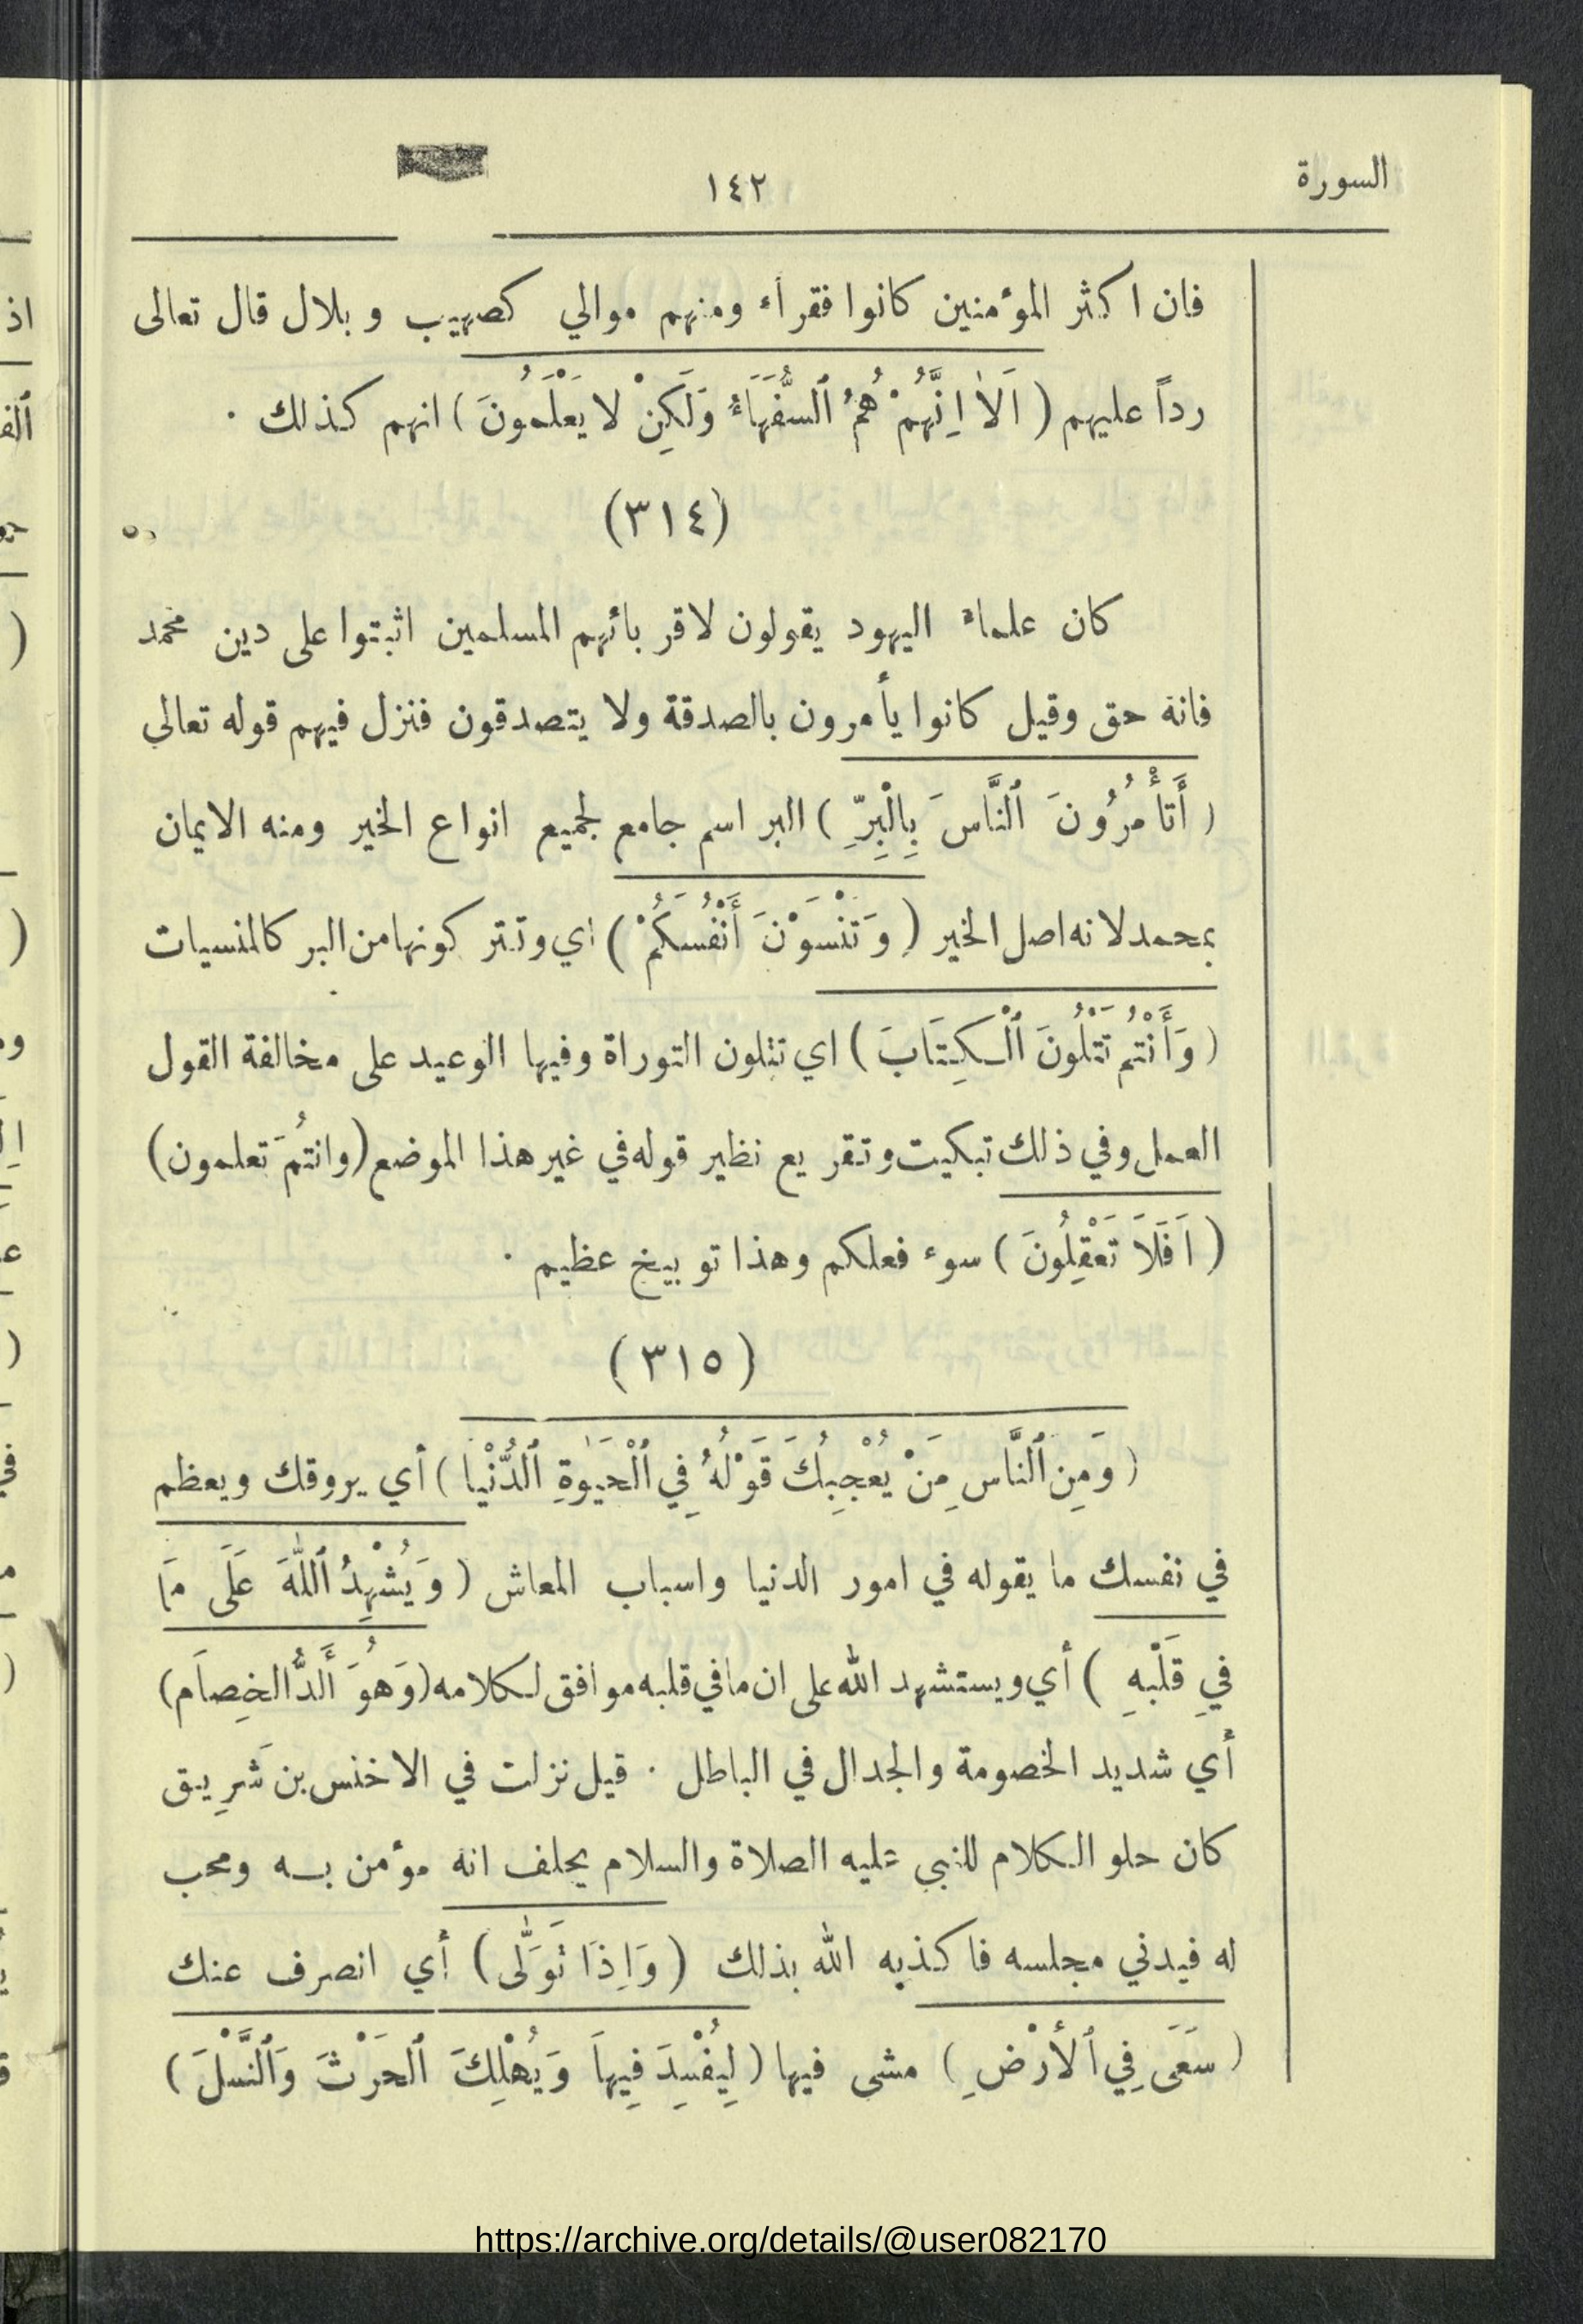 السورة
١٤٢
فان اكثر المؤمنين كانوا فقرآء ومنهم موالي كصهيب وبلال قال تعالى
رداً عليهم ( اَلاٰ اِنَّهُمْ هُمُ ٱلسُّفَهَاَءُ وَلَكِنْ لا يَعْلَمُونَ ) انهم كذلك ·
(٣١٤)
كان علماء اليهود يقولون لاقربائهم المسلمين اثبتوا على دين محمد
فانه حق وقيل كانوا يأمرون بالصدقة ولا يتصدقون فنزل فيهم قوله تعالى
( أَتأْمُرُونَ ٱلنَّاسَ بِالْبِرِّ ) البر اسم جامع لجميع انواع الخير ومنه الايمان
بمحمد لانه اصل الخير ( وَتَنْسَوْنَ أَنْفُسَكُمْ ) أي وتتركونها من البر كالمنسيات
( وَأَنْتُمْ تَتْلُونَ ٱلْكِتَابَ ) اي تتلون التوراة وفيها الوعيد على مخالفة القول
العمل وفي ذلك تبكيت وتقريع نظير قوله في غير هذا الموضع (وانتُمَ تعلمون)
( اَفَلاَ تَعْقِلُونَ ) سوء فعلكم وهذا توبيخ عظيم ·
(٣١٥)
( وَمِنَ ٱلنَّاسِ مَنْ يُعْجِبُكَ قَوْلُهُ فِي ٱلْحَيٰوةِ ٱلدُّنْيا ) أي يروقك ويعظم
في نفسك ما يقوله في امور الدنيا واسباب المعاش ( وَيُشْهِدُ ٱللّٰهَ عَلَى مَا
فِي قَلْبَهِ ) أي ويستشهد الله على ان ما في قلبه موافق لكلامه (وَهُوَ أَلَدُّ الخِصاَم)
أي شديد الخصومة والجدال في الباطل · قيل نزلت في الاخنس بن شَرِيق
كان حلو الكلام للنبي عليه الصلاة والسلام يحلف انه مؤمن به ومحب
له فيدني مجلسه فاكذبه الله بذلك ( وَاِذَا تَوَلَّى ) أي انصرف عنك
( سَعَى فِي ٱلأَرْضِ ) مشى فيها ( لِيُفْسِدَ فِيهاَ وَيُهْلِكَ ٱلحَرْثَ وَٱلنَّسْلَ )
https://archive.org/details/@user082170